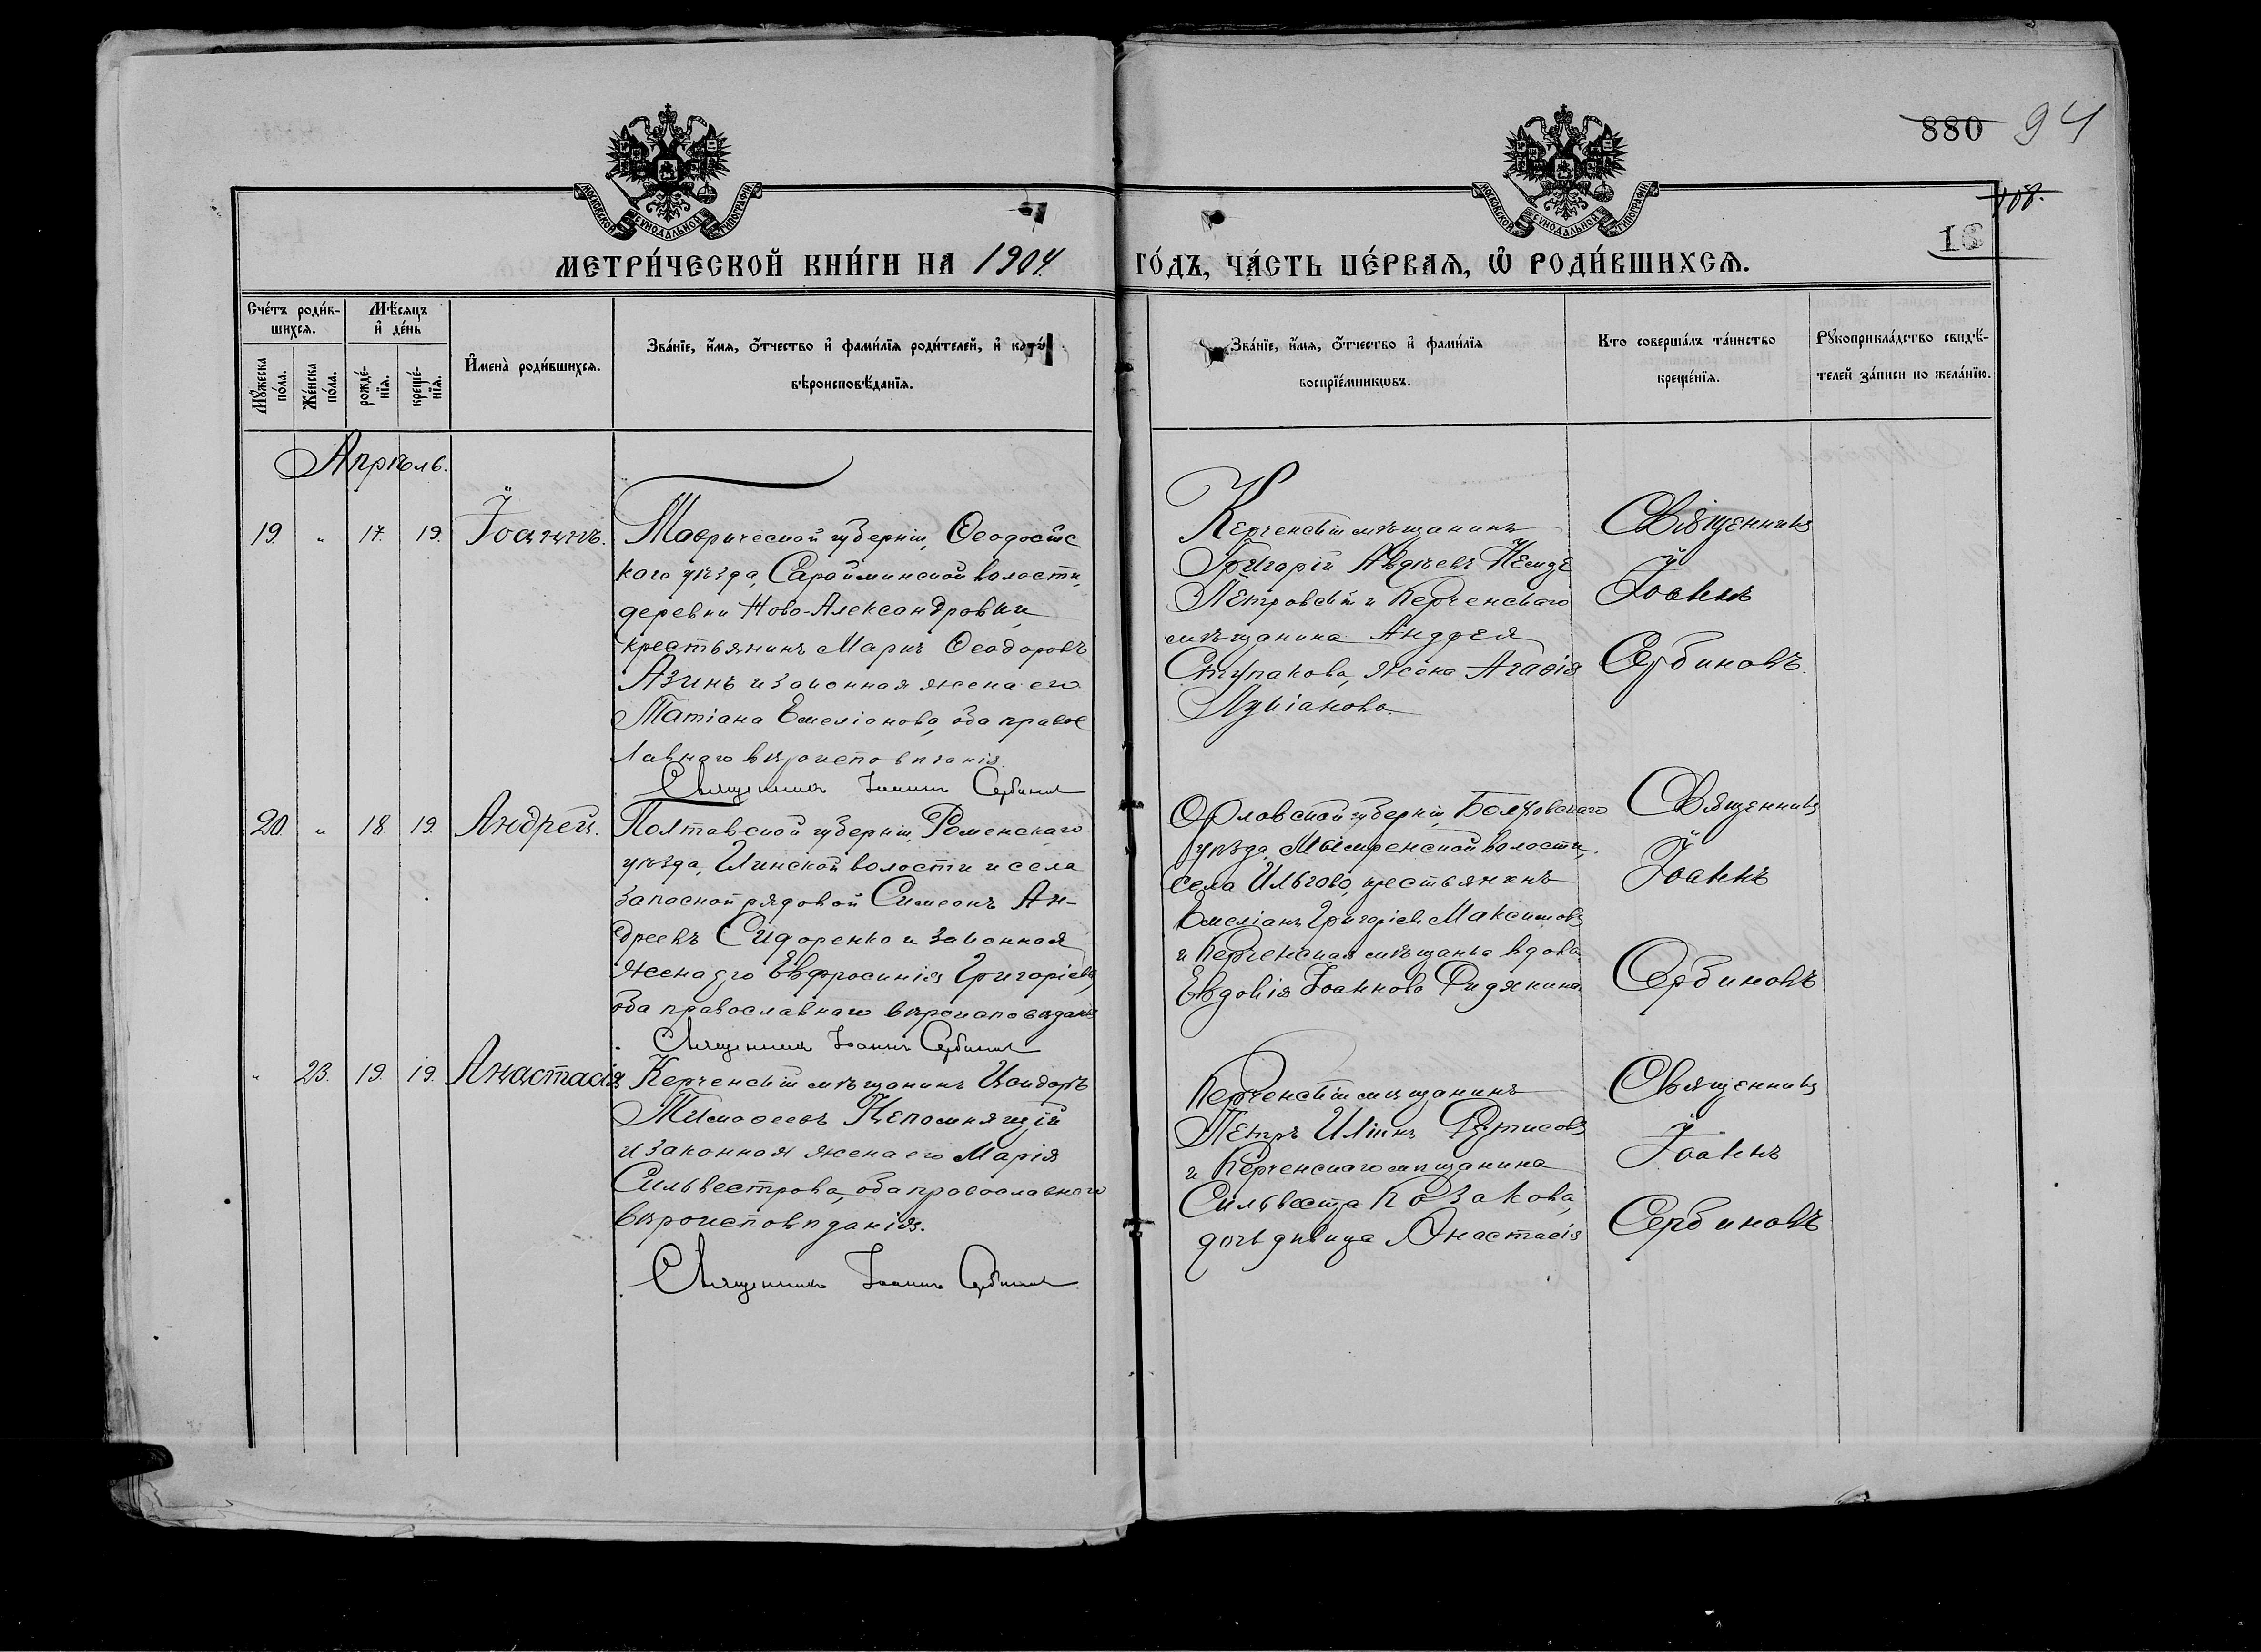 880 94
108.
16
МОСКОВСКОЙ СѴНОДАЛЬНОЙ ТИПОГРАФІИ
МОСКОВСКОЙ СѴНОДАЛЬНОЙ ТИПОГРАФІИ
МЕТРИ́ЧЕСКОЙ КНИ́ГИ НА 1904 ГО́ДЪ, ЧА́СТЬ ПЕ́РВАѦ, Ѡ҆ РОДИ́ВШИХСѦ.
Сче́тъ роди́в-
шихсѧ.
Мѣ́сяцъ
и҆ де́нь
Мꙋ́жеска
по́ла.
Же́нска
по́ла.
рожде́-
нїѧ.
креще́-
нїѧ.
И҆мена̀ роди́вшихсѧ.
Зва́нїе, и҆́мѧ, ѻ҆́тчество и҆ фами́лїѧ роди́телей, и҆
вѣроисповѣ́данїѧ.
Зва́нїе, и҆́мѧ, ѻ҆́тчество и҆ фами́лїѧ
воспрїе́мникѡвъ.
Кто соверша́лъ та́инство
креще́нїѧ.
Рꙋкоприкла́дство свидѣ́-
телей за́писи по жела́нїю.
Апрѣль.
19. " 17. 19. Іоаннъ.
Таврической губерніи, Ѳеодосійс
каго уѣзда, Сарайминской волости,
деревни Ново-Александровки,
крестьянинъ Марич Ѳеодоровъ
Азинъ и законная жена его
Татіана Емеліанова, оба правос
лавнаго вѣроисповѣданія.
Священникъ Іоаннъ Сербиновъ
Керченскій мѣщанинъ
Григорій Авдѣевъ
Петровскій и Керченскаго
мѣщанина Андрея
Ступакова, жена Агафія
Лукіанова.
Священникъ
Іоаннъ
Сербиновъ.
20. " 18 19. Андрей.
Полтавской губерніи, Роменскаго
уѣзда, волости и села
запасной рядовой Симеонъ Ан-
дреевъ Сидоренко и законная
жена его Евфросинія Григоріева,
оба православнаго вѣроисповѣданія
Священникъ Іоаннъ Сербиновъ
Орловской губерніи, Болховскаго
уѣзда, волости,
села Ильгово, крестьянинъ
Емеліанъ Григоріевъ Максимовъ
и Керченская мѣщанка вдова
Евдокія Іоаннова
Священникъ
Іоаннъ
Сербиновъ
" 23. 19. 19. Анастасія
Керченскій мѣщанинъ Исидоръ
Тимофеевъ Непомнящій
и законная жена его Марія
Сильвестрова, оба православнаго
вѣроисповѣданія.
Священникъ Іоаннъ Сербиновъ
Керченскій мѣщанинъ
Петръ Илiинъ
и Керченскаго мѣщанина
Сильвестра Козакова,
дочь дѣвица Анастасія
Священникъ
Іоаннъ
Сербиновъ